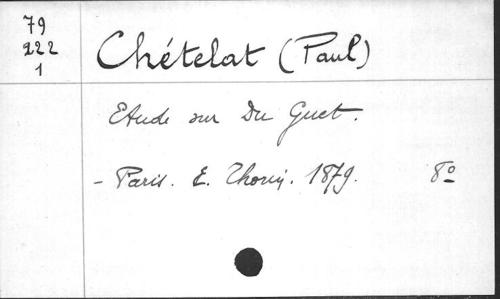 79
222
1
Chételat (Paul)
Etude sur Du Guet.
- Paris. E. Thorin. 1879. 8º